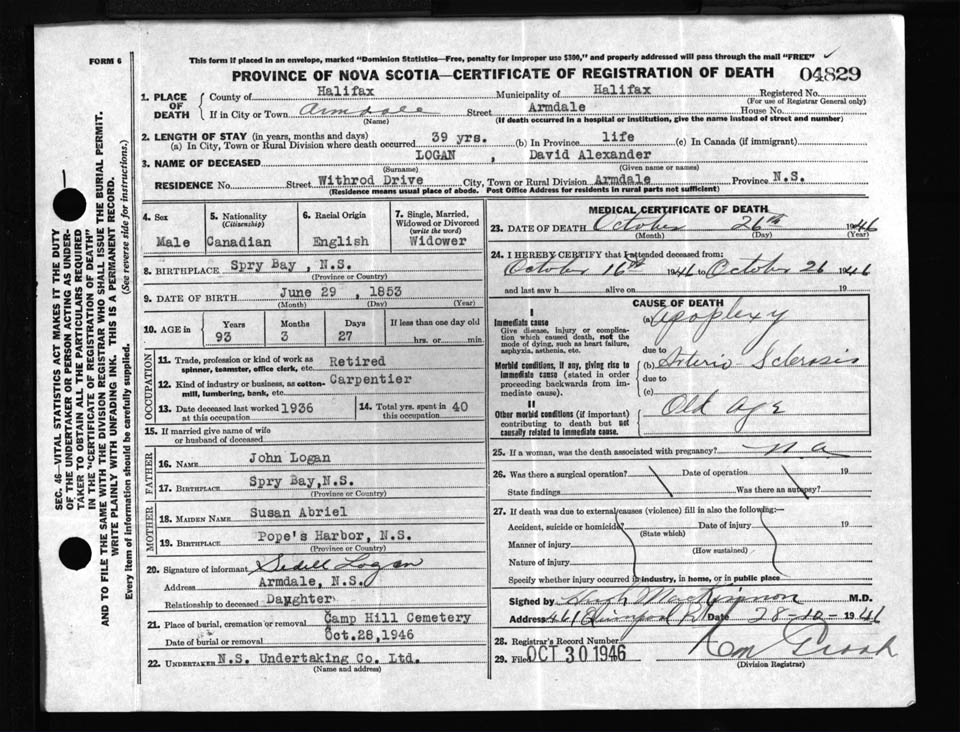 FORM 6
This form if placed in an envelope, marked "Dominion Statistics—Free, penalty for improper use $300," and properly addressed will pass through the mail "FREE"
PROVINCE OF NOVA SCOTIA—CERTIFICATE OF REGISTRATION OF DEATH 04829
1. PLACE OF DEATH
County of Halifax Municipality of Halifax Registered No.
(For use of Registrar General only)
If in City or Town Armdale Street Armdale House No.
(Name) (If death occurred in a hospital or institution, give the name instead of street and number)
2. LENGTH OF STAY (in years, months and days)
(a) In City, Town or Rural Division where death occurred 39 yrs. (b) In Province life (c) In Canada (if immigrant)
3. NAME OF DECEASED LOGAN, David Alexander
(Surname) (Given name or names)
RESIDENCE No. Street Withrod Drive City, Town or Rural Division Armdale Province N.S.
(Residence means usual place of abode. Post Office Address for residents in rural parts not sufficient)
4. Sex
Male
5. Nationality
(Citizenship)
Canadian
6. Racial Origin
English
7. Single, Married, Widowed or Divorced
(write the word)
Widower
8. BIRTHPLACE Spry Bay, N.S.
(Province or Country)
9. DATE OF BIRTH June 29, 1853
(Month) (Day) (Year)
10. AGE in
Years Months Days If less than one day old
93 3 27 hrs. or min.
OCCUPATION
11. Trade, profession or kind of work as spinner, teamster, office clerk, etc. Retired
12. Kind of industry or business, as cotton-mill, lumbering, bank, etc. Carpentier
13. Date deceased last worked at this occupation 1936
14. Total yrs. spent in this occupation 40
15. If married give name of wife or husband of deceased
FATHER
16. NAME John Logan
17. BIRTHPLACE Spry Bay, N.S.
(Province or Country)
MOTHER
18. MAIDEN NAME Susan Abriel
19. BIRTHPLACE Pope's Harbor, N.S.
(Province or Country)
20. Signature of informant Logan
Address Armdale, N.S.
Relationship to deceased Daughter
21. Place of burial, cremation or removal Camp Hill Cemetery
Date of burial or removal Oct.28,1946
22. UNDERTAKER N.S. Undertaking Co. Ltd.
(Name and address)
MEDICAL CERTIFICATE OF DEATH
23. DATE OF DEATH October 26th 1946
(Month) (Day) (Year)
24. I HEREBY CERTIFY that I attended deceased from:
October 16th 1946 to October 26 1946
and last saw h alive on 19
CAUSE OF DEATH
I
Immediate cause
Give disease, injury or complication which caused death, not the mode of dying, such as heart failure, asphyxia, asthenia, etc.
(a) Apoplexy
due to
Morbid conditions, if any, giving rise to immediate cause (stated in order proceeding backwards from immediate cause).
(b) Arterio Sclerosis
due to
(c)
II
Other morbid conditions (if important) contributing to death but not causally related to immediate cause.
Old Age
25. If a woman, was the death associated with pregnancy? n.a
26. Was there a surgical operation? Date of operation 19
State findings Was there an autopsy?
27. If death was due to external causes (violence) fill in also the following:—
Accident, suicide or homicide? Date of injury 19
(State which)
Manner of injury
(How sustained)
Nature of injury
Specify whether injury occurred in industry, in home, or in public place
Signed by Hugh MacKinnon M.D.
Address 461 Date 28-10-1946
28. Registrar's Record Number
29. Filed OCT 30 1946
(Division Registrar)
SEC. 46—VITAL STATISTICS ACT MAKES IT THE DUTY
OF THE UNDERTAKER OR PERSON ACTING AS UNDER-
TAKER TO OBTAIN ALL THE PARTICULARS REQUIRED
IN THE "CERTIFICATE OF REGISTRATION OF DEATH"
AND TO FILE THE SAME WITH THE DIVISION REGISTRAR WHO SHALL ISSUE THE BURIAL PERMIT.
WRITE PLAINLY WITH UNFADING INK. THIS IS A PERMANENT RECORD.
Every item of information should be carefully supplied. (See reverse side for instructions.)